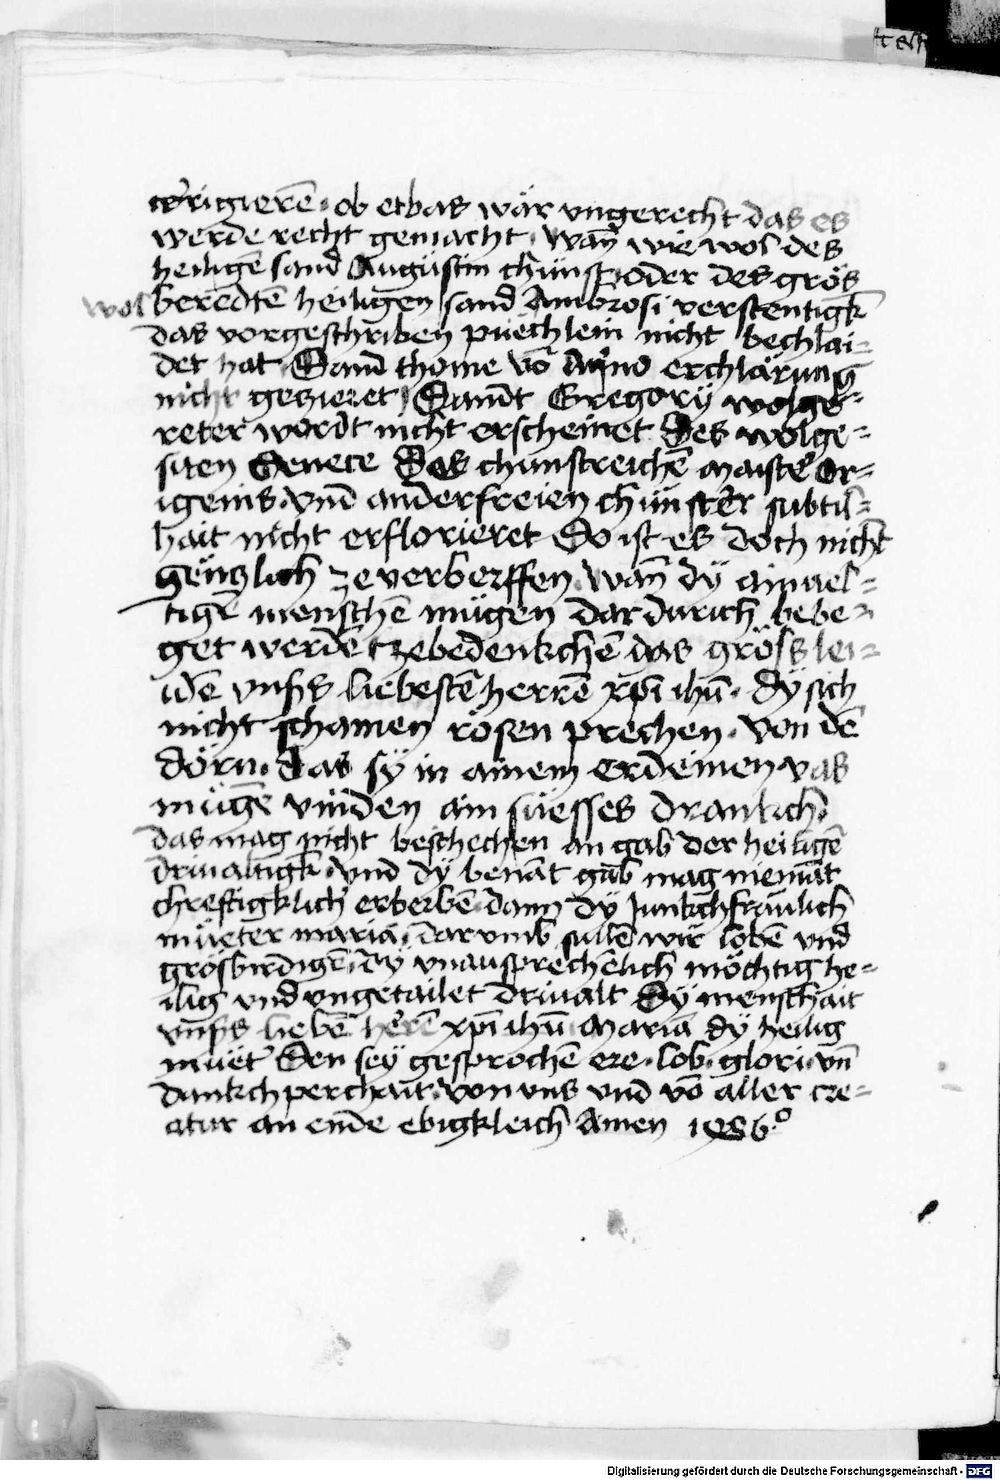 corrigierē · ob etbas wär vngerecht das es
werde recht gemacht · Wañ wie wol des
heiligē sand Augustin chünst · oder des grös
wol beredtē heiligen sand Ambrosi verstentigk
das vorgeschriben püechlein nicht bechlai=
det hat · Sand thome vō Aqino erchlärung
nicht gezieret / Sandt Gregory wolge=
reter wordt nicht erscheinet · Des wolge=
siten Senece Des chunstreichē maister Or=
igenis · vnd anderfreien chünster subtil=
hait nicht erflorieret So ist es doch nicht
gentzlich zeverberffen · Wañ dÿ ainuel=
tigē menschē mügen dardurich bebe=
get werdē tzebedenkchē das grös lei=
dē vnsers liebestē herrē xp̄i ihū · dÿ sich
nicht schamen rosen prechen · von dē
dörn · das sÿ in ainem erdeinen vas
mügē vinden ain süesses drankch ·
das mag nicht beschechen an gab der heiligē
driualtigk · vnd dÿ benāt gab mag niemāt
chreftigklich erberbē dann dÿ Junkchfraulich
müeter maria · darumb sullē wir lobē vnd
grösbirdigē · dÿ vnausprechēlich möchtig he=
ilig vnd vngetailet driualt Dÿ menschait
vnsers liebē herrē xp̄i ihū Maria dÿ heilig
muet' Den seÿ gesprochē ere · lob · glori · vn̄
dankchperchait · von vns vnd vō aller cre=
atur an ende ebigkleich Amen 1486°
Digitalisierung gefördert durch die Deutsche Forschungsgemeinschaft - DFG